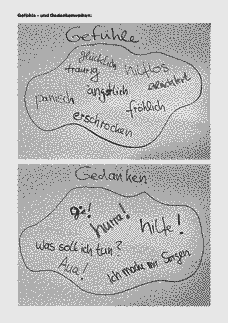 Gefühle - und Gedankenwolken:
Gefühle
glücklich
traurig
hilflos
ängstlich
erleichtert
panisch
fröhlich
erschrocken
Gedanken
hurra!
hilfe!
was soll ich tun?
Aua!
Ich mache mir Sorgen